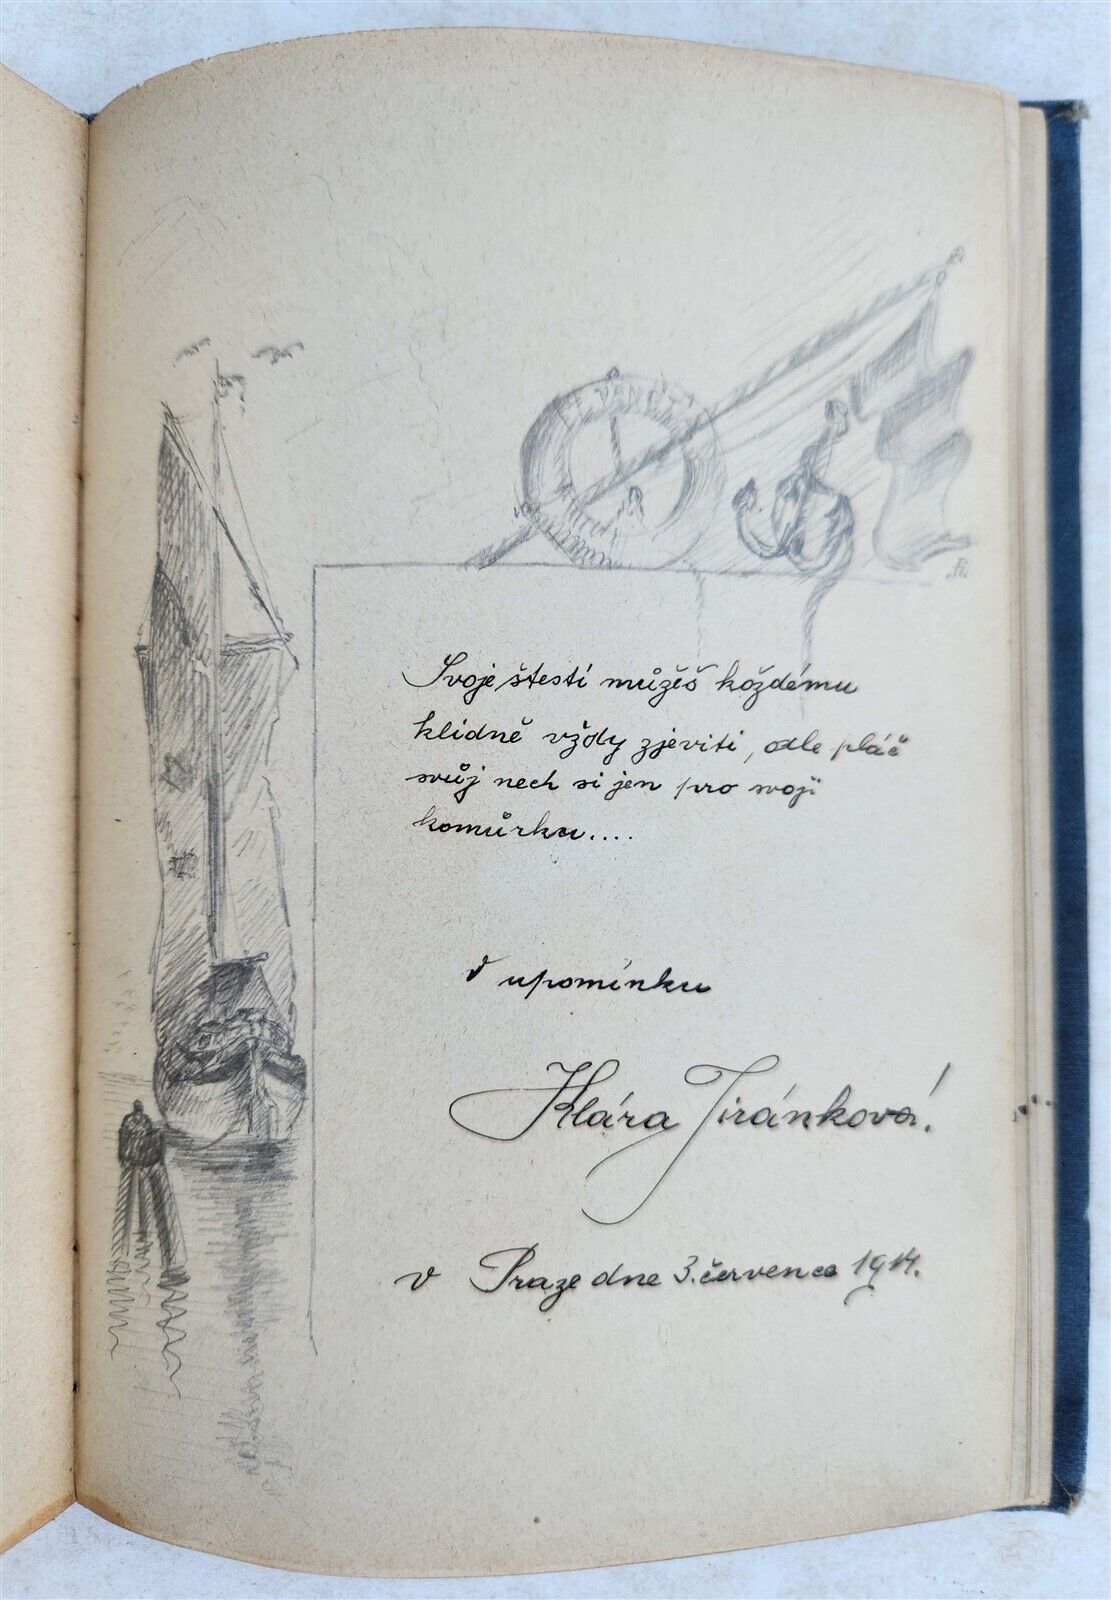 Svoje štestí můžeš každému
klidně vždy zjeviti, ale pláč
svůj nech si jen pro svoji
komůrku....
V upomínku
Klára Jiránková!
v Praze dne 3. července 1914.